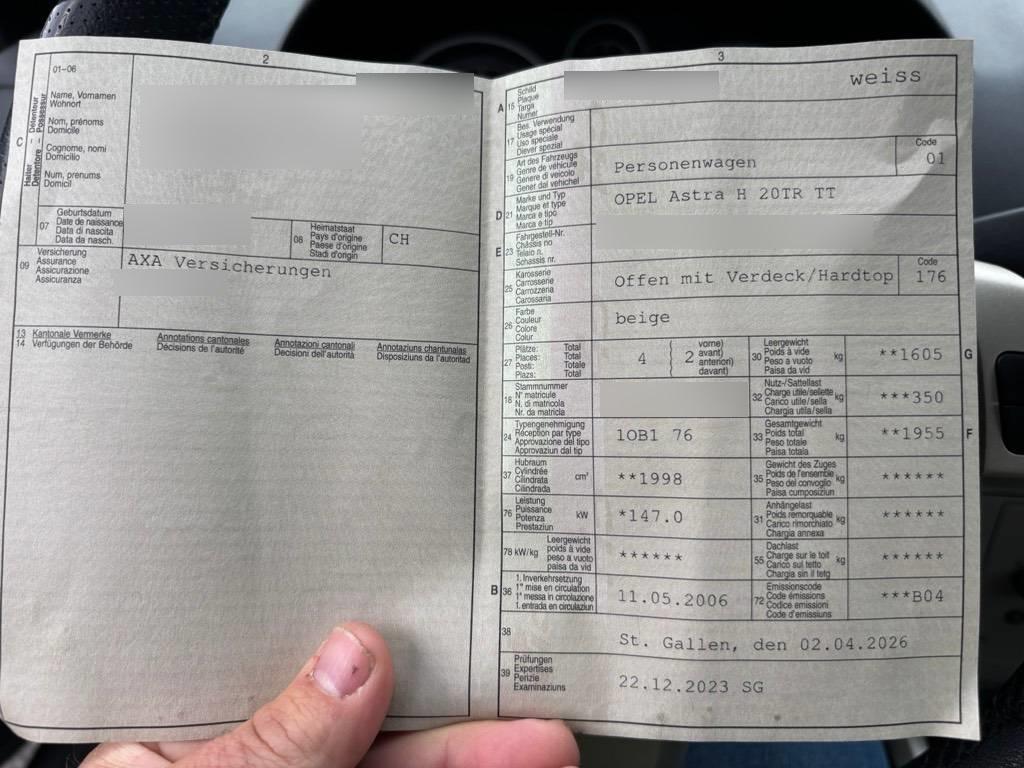 2
01-06
Halter Détenteur
Detentore Possessur
C
Name, Vornamen
Wohnort
Nom, prénoms
Domicile
Cognome, nomi
Domicilio
Num, prenums
Domicil
07 Geburtsdatum
Date de naissance
Data di nascita
Data da nasch.
08 Heimatstaat
Pays d'origine
Paese d'origine
Stadi d'origin
CH
09 Versicherung
Assurance
Assicurazione
Assicuranza
AXA Versicherungen
13 Kantonale Vermerke Annotations cantonales Annotazioni cantonali Annotaziuns chantunalas
14 Verfügungen der Behörde Décisions de l'autorité Decisioni dell'autorità Disposiziuns da l'autoritad
3
A 15 Schild
Plaque
Targa
Numer
weiss
17 Bes. Verwendung
Usage spécial
Uso speciale
Diever spezial
19 Art des Fahrzeugs
Genre de véhicule
Genere di veicolo
Gener dal vehichel
Personenwagen
Code
01
D 21 Marke und Typ
Marque et type
Marca e tipo
Marca e tip
OPEL Astra H 20TR TT
E 23 Fahrgestell-Nr.
Châssis no
Telaio n.
Schassis nr.
25 Karosserie
Carrosserie
Carrozzeria
Carossaria
Offen mit Verdeck/Hardtop
Code
176
26 Farbe
Couleur
Colore
Colur
beige
27 Plätze: Total
Places: Total
Posti: Totale
Plazs: Total
4
2
vorne)
avant)
anteriori)
davant)
30 Leergewicht
Poids à vide
Peso a vuoto
Paisa da vid
kg
**1605
G
18 Stammnummer
N° matricule
N. di matricola
Nr. da matricla
32 Nutz-/Sattellast
Charge utile/sellette
Carico utile/sella
Chargia utila/sella
kg
***350
24 Typengenehmigung
Réception par type
Approvazione del tipo
Approvaziun dal tip
1OB1 76
33 Gesamtgewicht
Poids total
Peso totale
Paisa totala
kg
**1955
F
37 Hubraum
Cylindrée
Cilindrata
Cilindrada
cm³
**1998
35 Gewicht des Zuges
Poids de l'ensemble
Peso del convoglio
Paisa cumposiziun
kg
******
76 Leistung
Puissance
Potenza
Prestaziun
kW
*147.0
31 Anhängelast
Poids remorquable
Carico rimorchiato
Chargia annexa
kg
******
78 kW/kg
Leergewicht
poids à vide
peso a vuoto
paisa da vid
******
55 Dachlast
Charge sur le toit
Carico sul tetto
Chargia sin il tetg
kg
******
B 36 1. Inverkehrsetzung
1re mise en circulation
1a messa in circolazione
1. entrada en circulaziun
11.05.2006
72 Emissionscode
Code émissions
Codice emissioni
Code d'emissiuns
***B04
38
St. Gallen, den 02.04.2026
39 Prüfungen
Expertises
Perizie
Examinaziuns
22.12.2023 SG